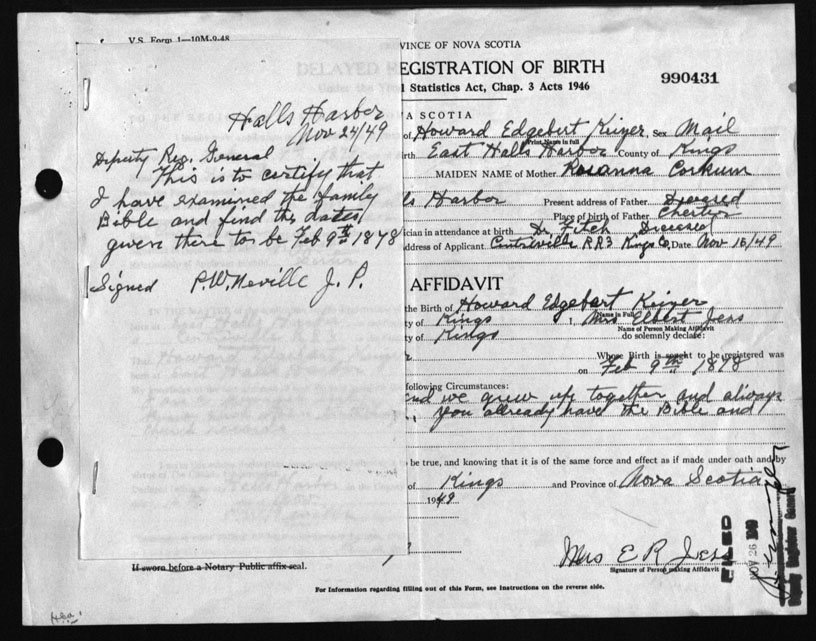 V.S. Form 1—10M-9-48
VINCE OF NOVA SCOTIA
DELAYED REGISTRATION OF BIRTH
990431
l Statistics Act, Chap. 3 Acts 1946
Halls Harbor
Nov 24/49
Deputy Reg. General
This is to certify that
I have examined the family
Bible and find the dates
given there to be Feb 9th 1878
Signed P.W. Neville J. P.
A SCOTIA
of Howard Edgebert Keizer, Sex Mail
Print Name in full
irth East Halls Harbor County of Kings
MAIDEN NAME of Mother Rosanna Corkum
lls Harbor Present address of Father Diseased
Place of birth of Father Chester
ician in attendance at birth Dr Fitch Diseased
ddress of Applicant Centreville R.R3 Kings Co, Date Nov 15/49
AFFIDAVIT
the Birth of Howard Edgebart Keizer
Name in Full
ty of Kings I, Mrs Elbert Jess
Name of Person Making Affidavit
ty of Kings do solemnly declare:
Whose Birth is sought to be registered was
on Feb 9th 1878
following Circumstances:
and we grew up together and always
you already have the Bible and
be true, and knowing that it is of the same force and effect as if made under oath and by
of Kings and Province of Nova Scotia
1949
Mrs E R Jess
Signature of Person making Affidavit
If sworn before a Notary Public affix seal.
For Information regarding filling out of this Form, see Instructions on the reverse side.
FILED
NOV 26 1949
Deputy Registrar General